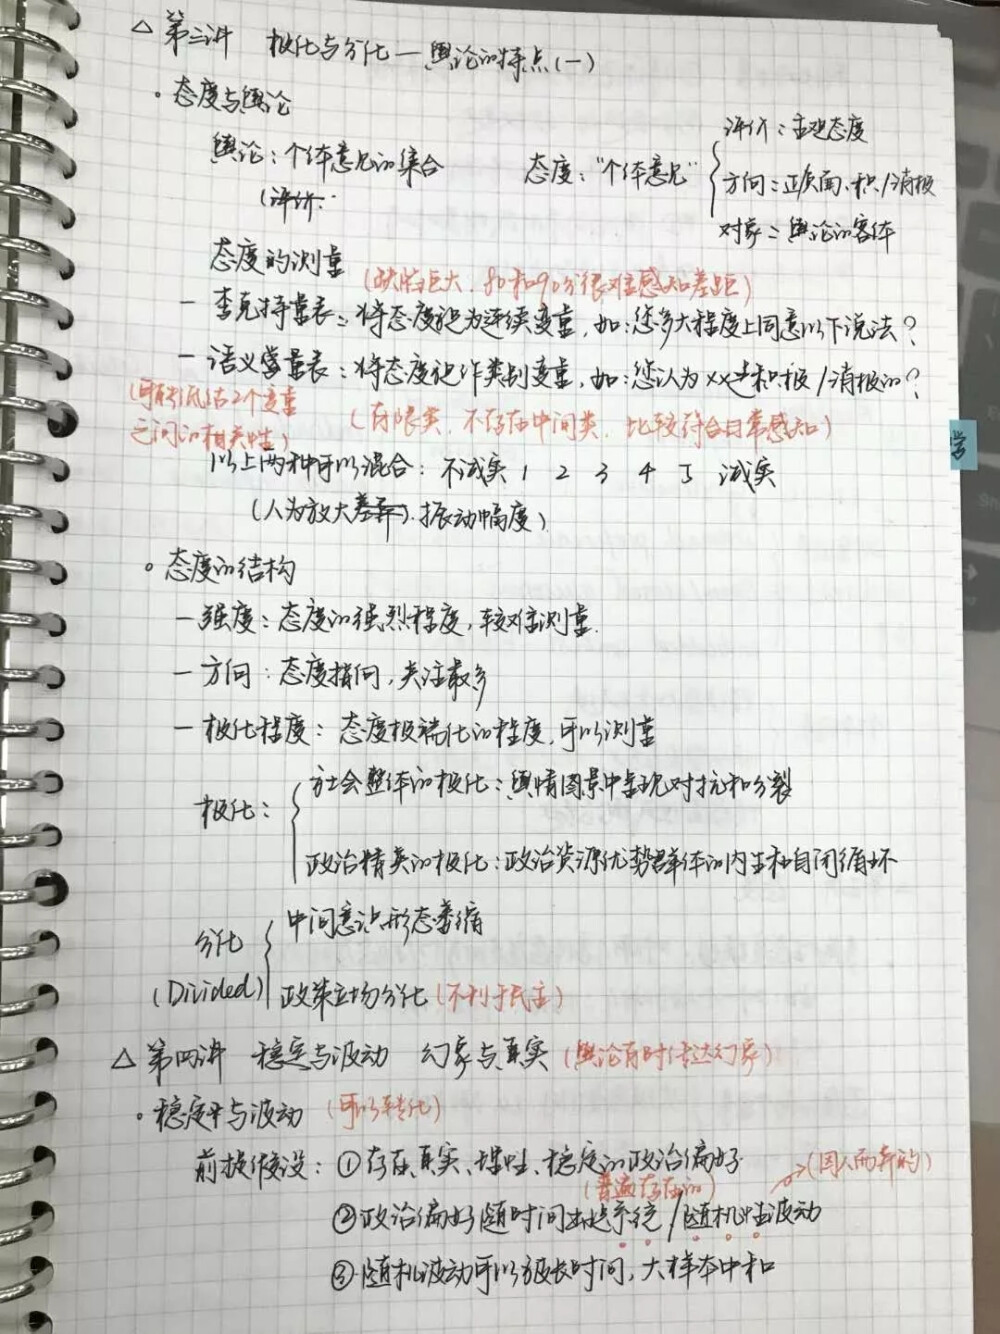 △ 第三讲 极化与分化—舆论的特点(一)
· 态度与舆论
舆论：个体意见的集合
(评价:
态度："个体意见"
评价：主观态度
方向：正/负面、积/消极
对象：舆论的客体
态度的测量
(缺陷:距大、80和90分很难感知差距)
— 李克特量表：将态度视为连续变量，如：您多大程度上同意以下说法？
— 语义量表：将态度视作类别变量，如：您认为xx是积极/消极的？
(可能低估2个变量
之间的相关性)
(有限类、不存在中间类、比较符合日常感知)
以上两种可以混合：不诚实 1 2 3 4 5 诚实
(人为放大差异、振动幅度)
· 态度的结构
— 强度：态度的强烈程度，较难测量.
— 方向：态度指向，关注最多
— 极化程度：态度极端化的程度，可以测量
极化：
社会整体的极化：舆情图景中呈现对抗和分裂
政治精英的极化：政治资源优势群体的内生和自闭循环
分化
(Divided)
中间意识形态萎缩
政策立场分化(不利于民主)
△ 第四讲 稳定与波动 幻象与真实 (舆论有时传达幻象)
· 稳定与波动 (可以转化)
前提假设：①存在真实、理性、稳定的政治偏好
(普遍存在的)
(因人而异的)
②政治偏好随时间出现系统/随机性波动
③随机波动可以被长时间，大样本中和